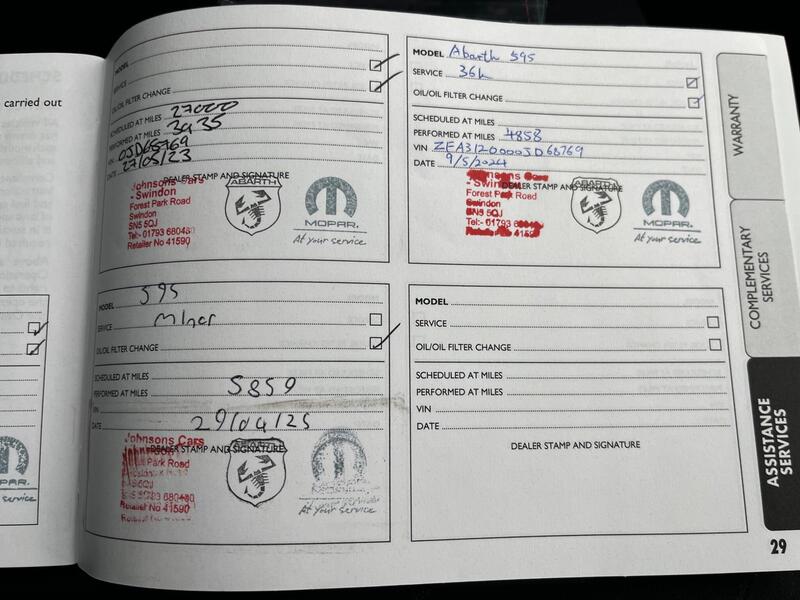 carried out
MODEL
SERVICE
OIL/OIL FILTER CHANGE
SCHEDULED AT MILES 27000
PERFORMED AT MILES 3935
VIN OJD68769
DATE 27/05/23
DEALER STAMP AND SIGNATURE
Johnsons Cars
- Swindon
Forest Park Road
Swindon
SN5 5QJ
Tel:- 01793 680480
Retailer No 41590
ABARTH
MOPAR.
At your service
MODEL Abarth 595
SERVICE 36k
OIL/OIL FILTER CHANGE
SCHEDULED AT MILES
PERFORMED AT MILES 4858
VIN ZFA3120000JD68769
DATE 9/5/2024
DEALER STAMP AND SIGNATURE
- Swindon
Forest Park Road
Swindon
SN5 5QJ
Tel:- 01793
ABARTH
MOPAR.
At your service
MODEL 595
SERVICE Minor
OIL/OIL FILTER CHANGE
SCHEDULED AT MILES
PERFORMED AT MILES 5859
VIN
DATE 29/04/25
DEALER STAMP AND SIGNATURE
Johnsons Cars
Park Road
5QJ
680480
Retailer No 41590
ABARTH
At your service
MODEL
SERVICE
OIL/OIL FILTER CHANGE
SCHEDULED AT MILES
PERFORMED AT MILES
VIN
DATE
DEALER STAMP AND SIGNATURE
PAR.
r service
WARRANTY
COMPLEMENTARY
SERVICES
ASSISTANCE
SERVICES
29